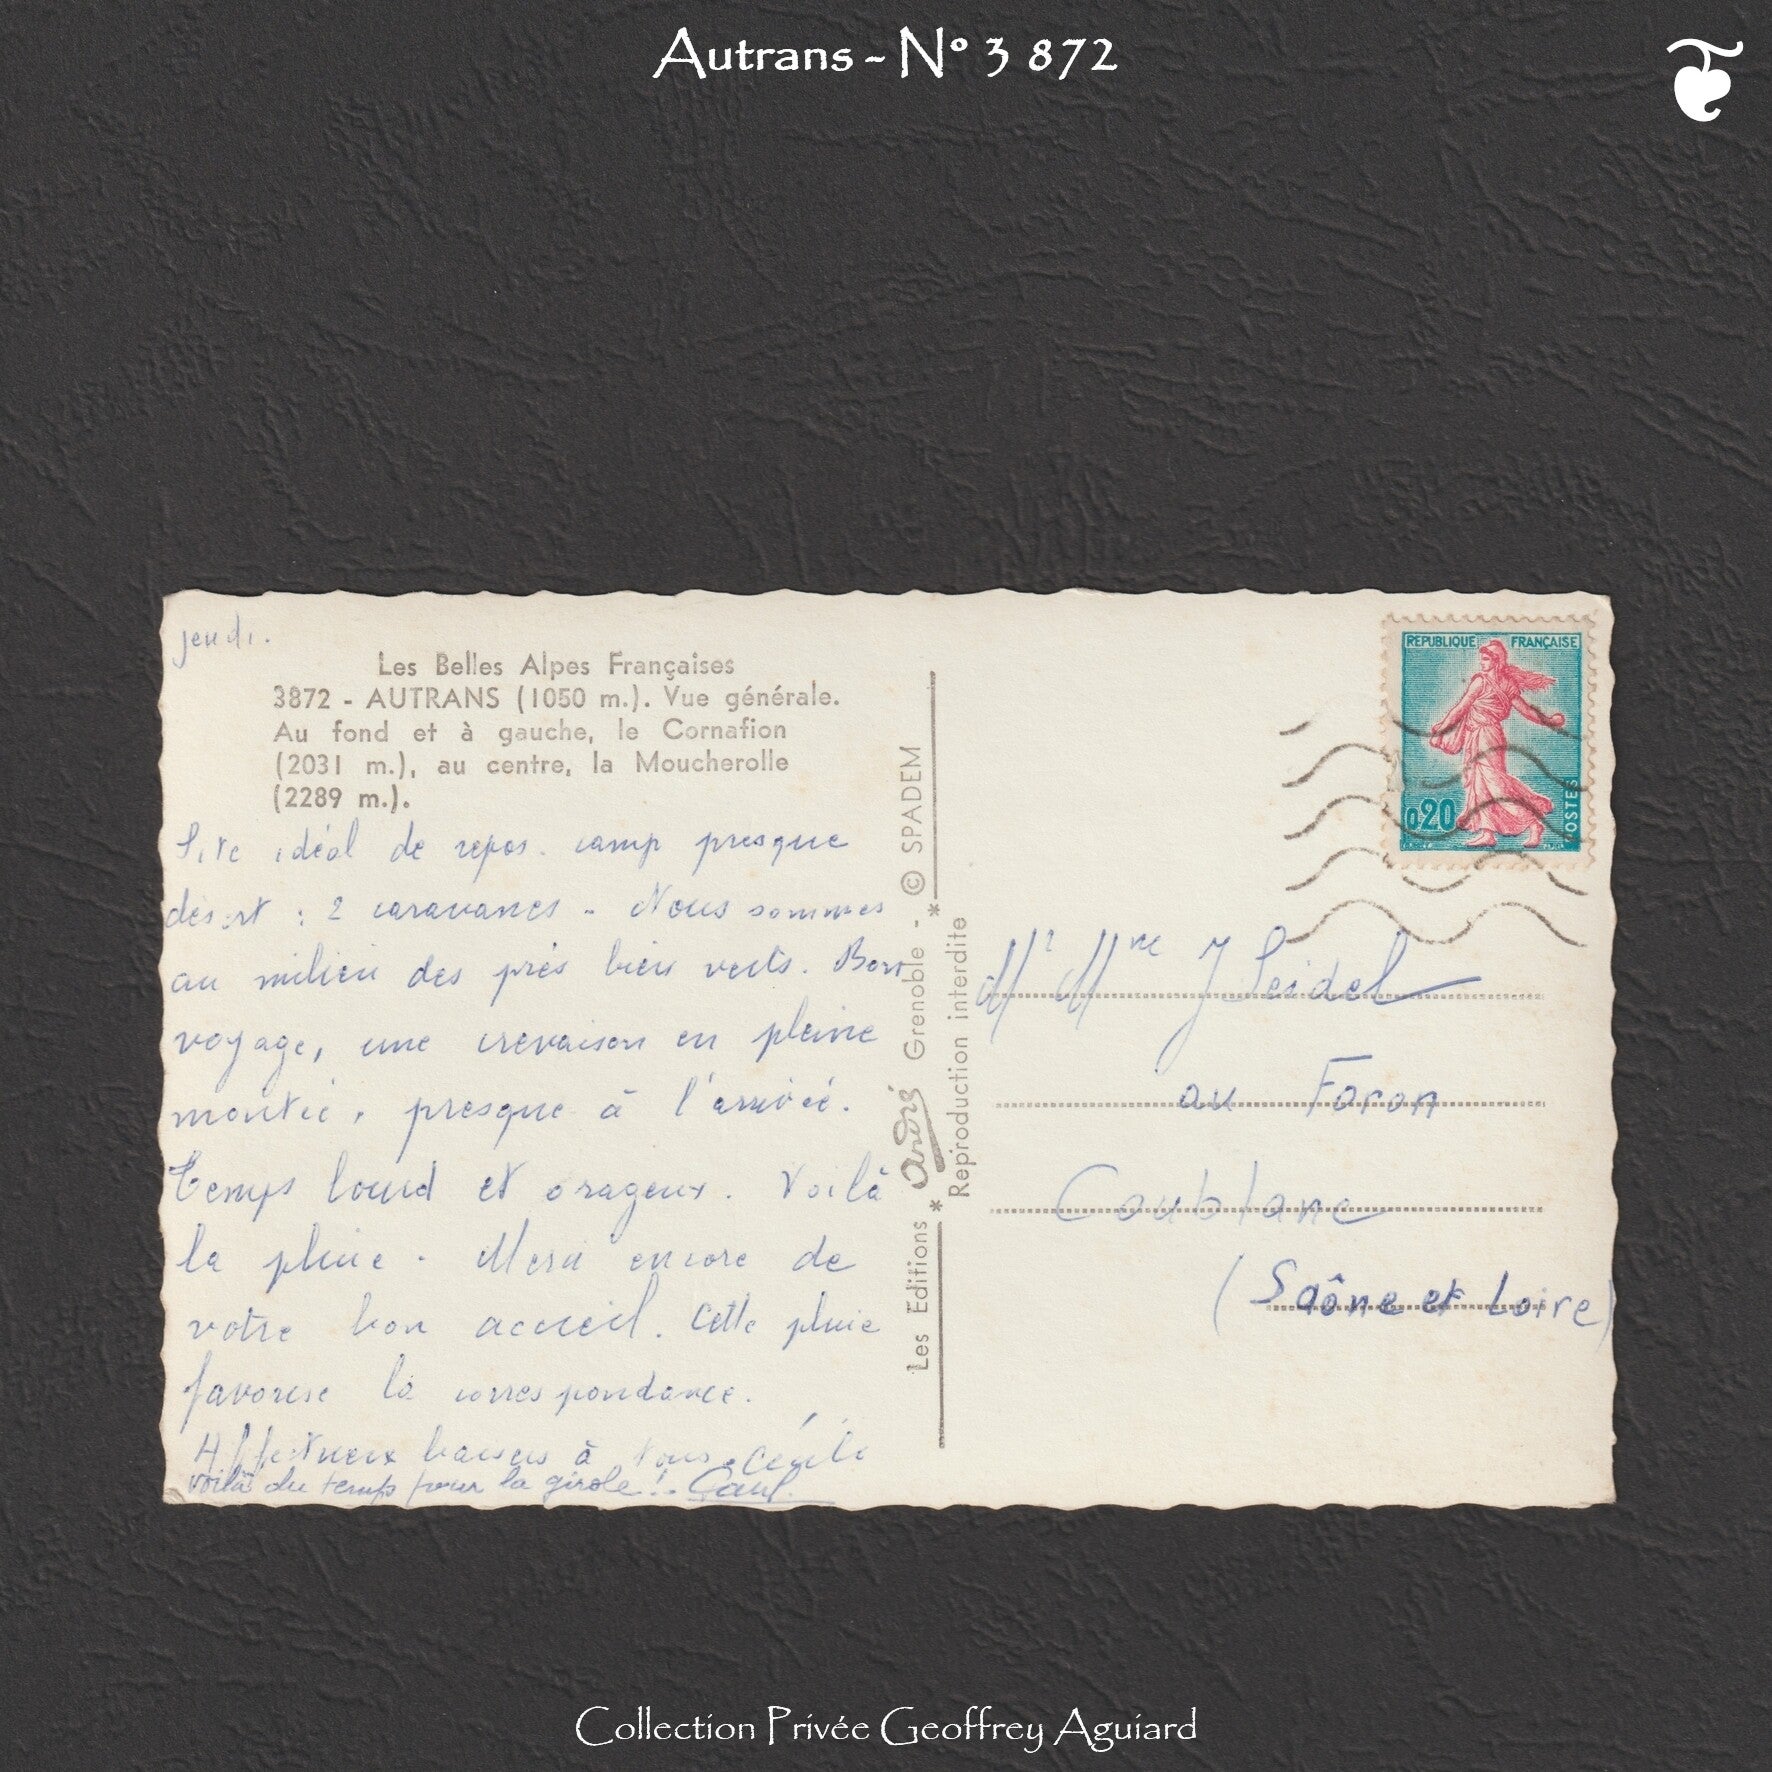 Autrans - N° 3 872
jeudi.
Les Belles Alpes Françaises
3872 - AUTRANS (1050 m.). Vue générale.
Au fond et à gauche, le Cornafion
(2031 m.), au centre, la Moucherolle
(2289 m.).
Site idéal de repos. camp presque
désert : 2 caravanes - Nous sommes
au milieu des prés bien verts. Bon
voyage, une crevaison en pleine
montée, presque à l'arrivée.
Temps lourd et orageux. Voilà
la pluie. Merci encore de
votre bon accueil. Cette pluie
favorise la correspondance.
Affectueux baisers à tous. Cécile
voilà du temps pour la girole ! Paul.
Les Editions * andris * Grenoble - © SPADEM
Reproduction interdite
REPUBLIQUE FRANÇAISE
0,20
POSTES
Mr Mme J Seidel
au Foron
Coublanc
(Saône et Loire)
Collection Privée Geoffrey Aguiard